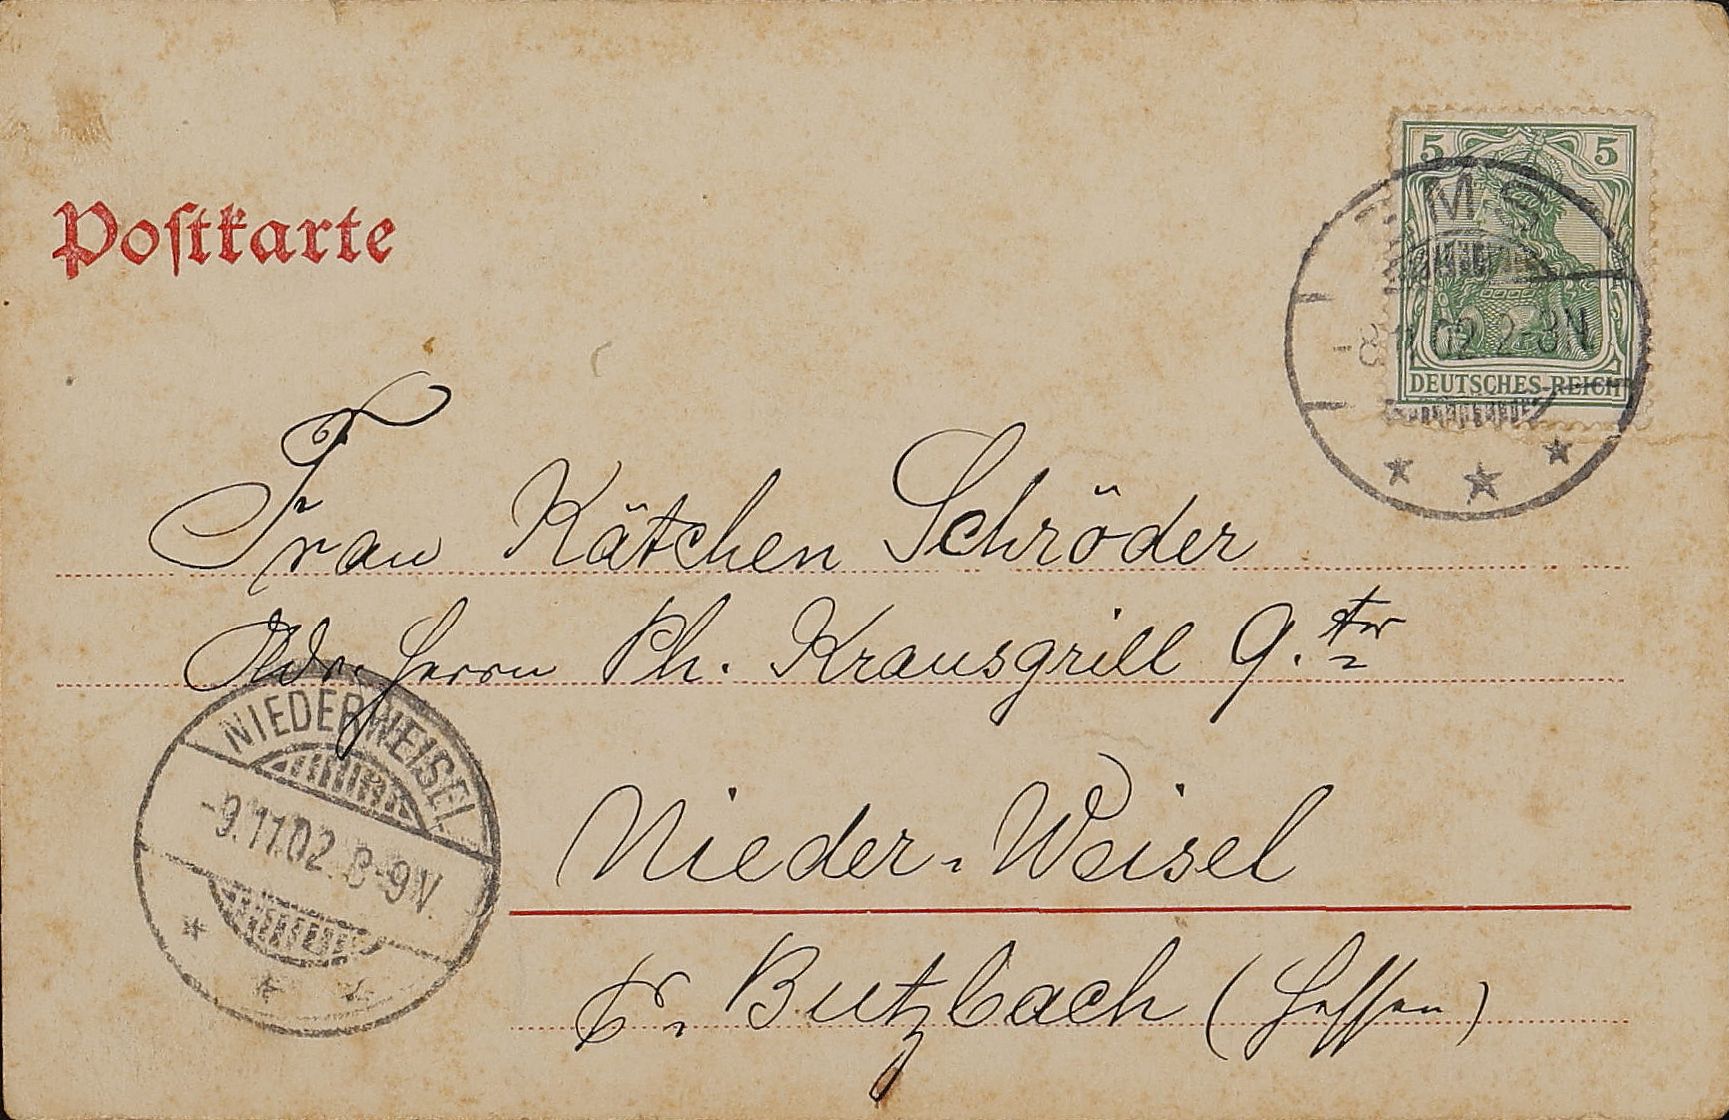 Postkarte
5 5
DEUTSCHES REICH
02 2-3N
Frau Kätchen Schröder
Adr. Herrn Ph. Krausgrill 9.ter
NIEDERWEISEL
-9.11.02. 8-9N.
Nieder-Weisel
Butzbach (Hessen)